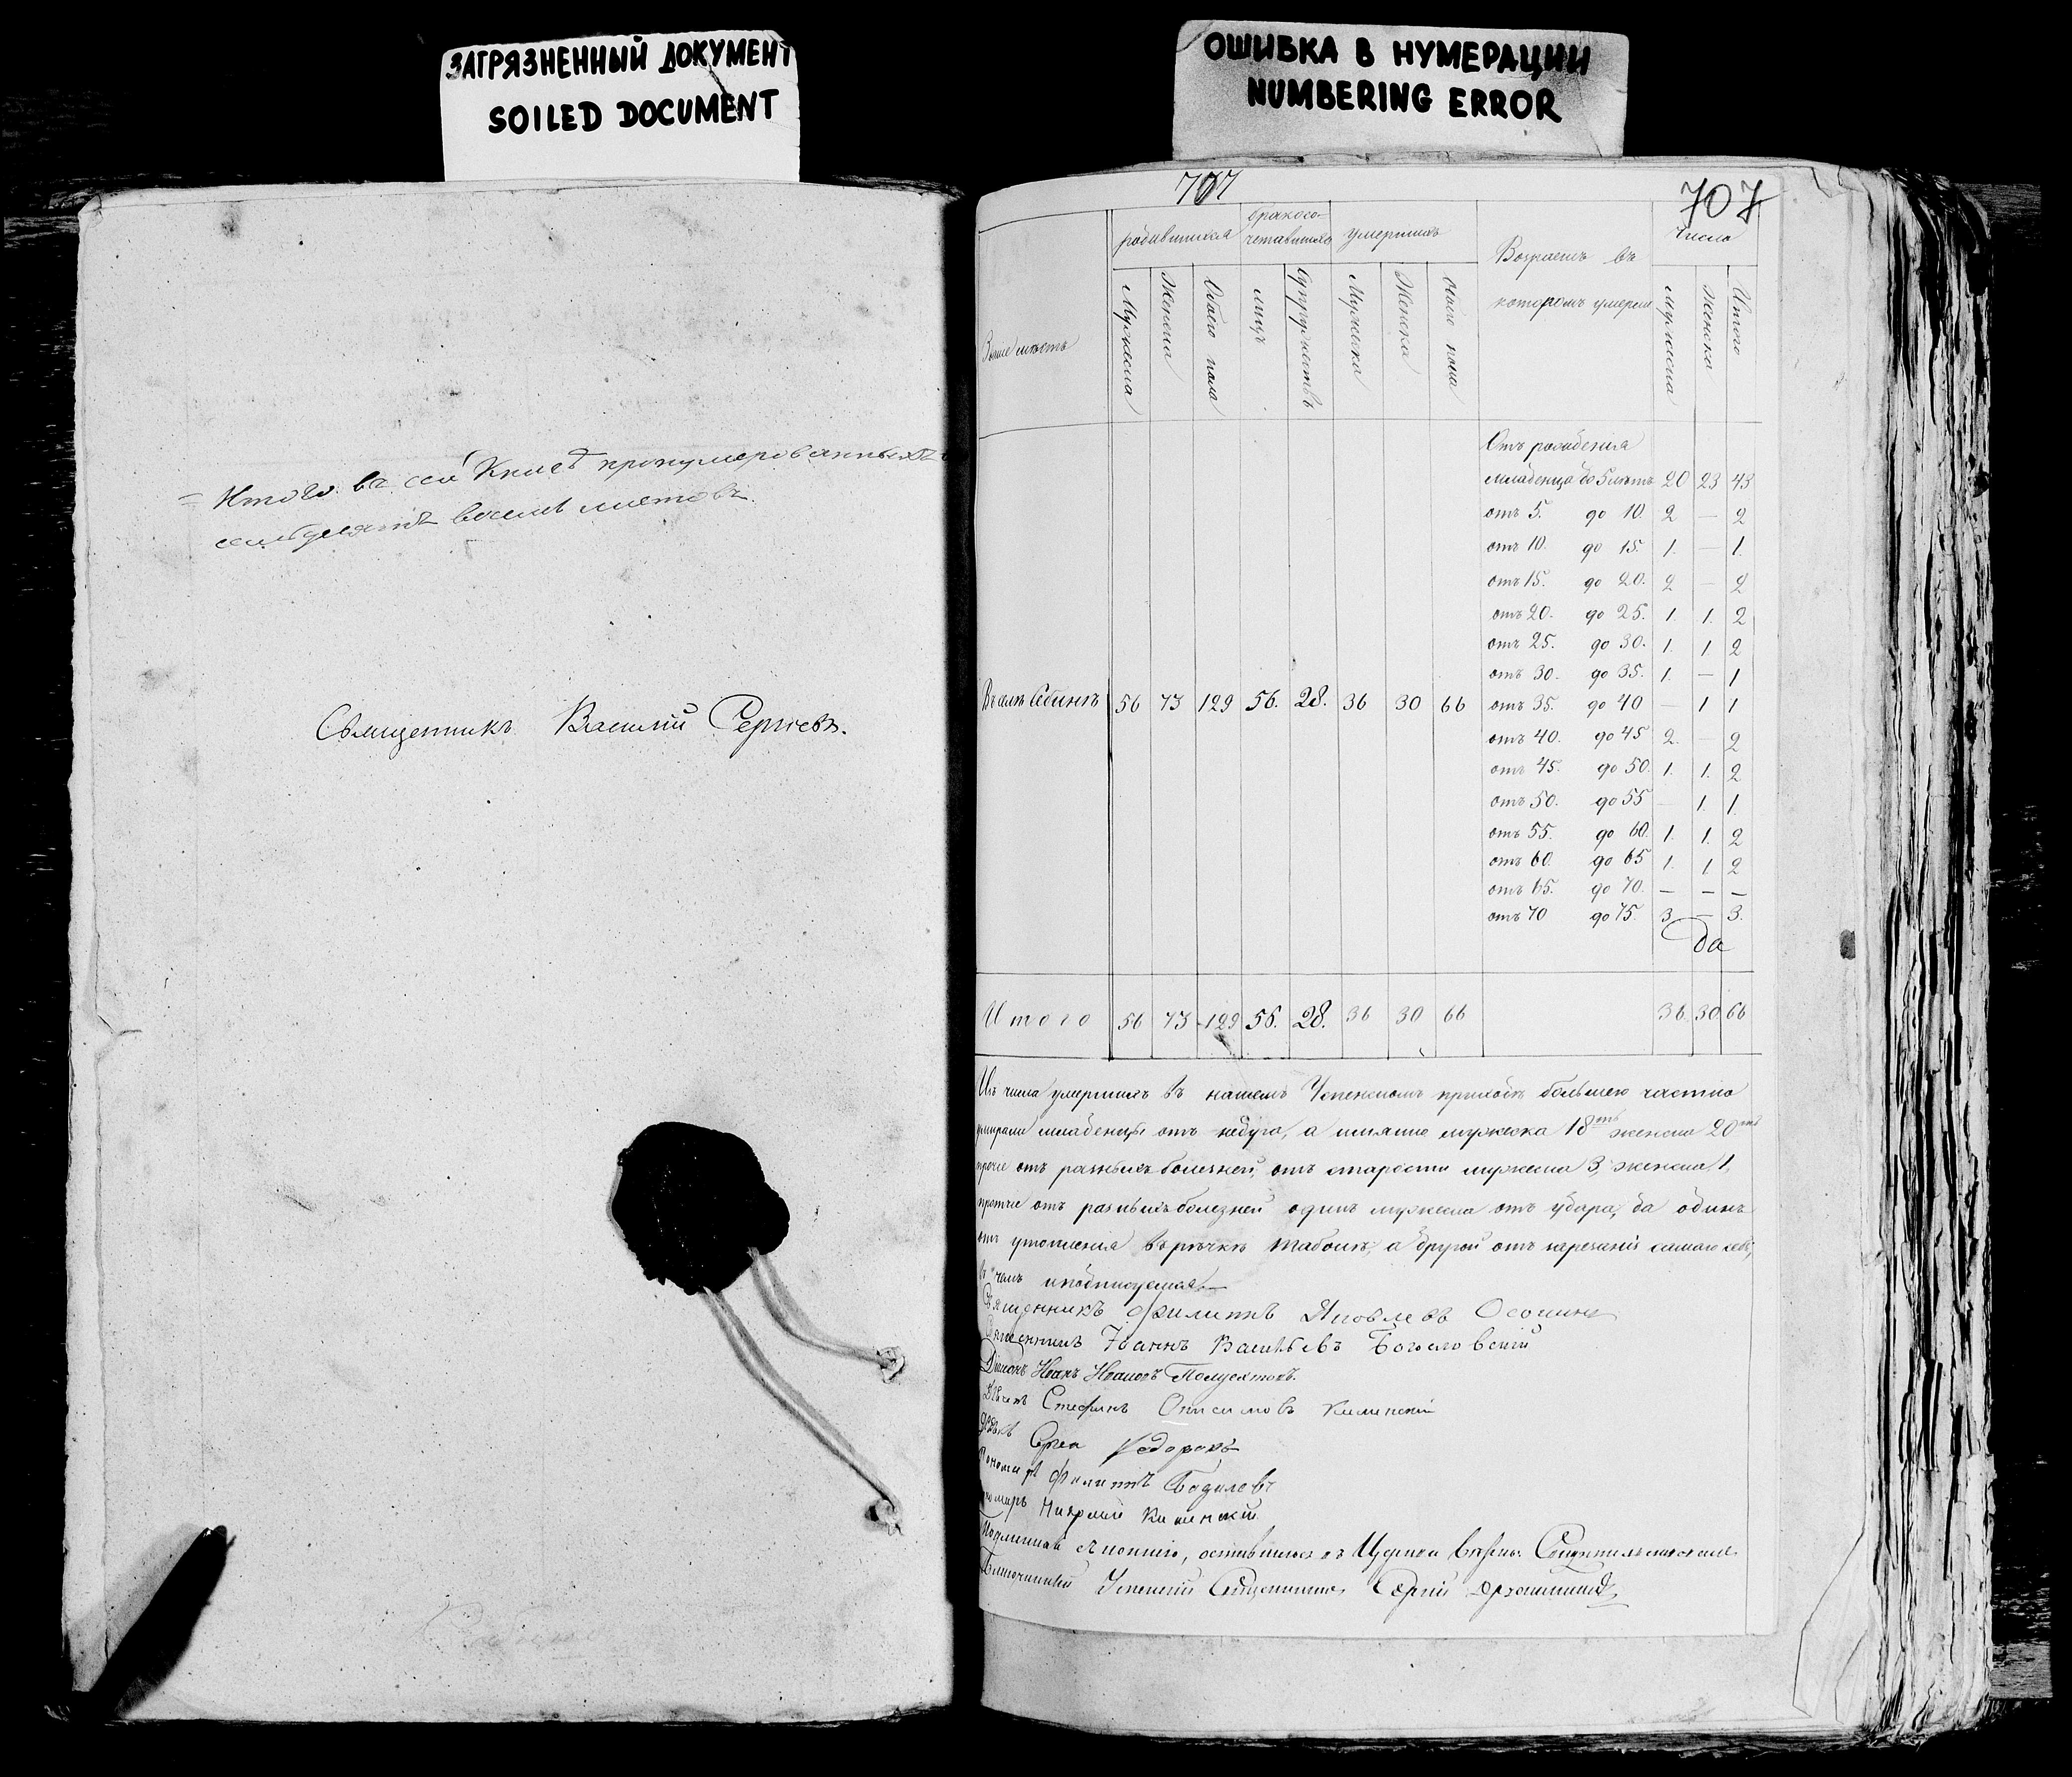 ЗАГРЯЗНЕННЫЙ ДОКУМЕНТ
SOILED DOCUMENT
= Итого въ сей Книгѣ пронумерованныхъ
семьдесятъ восемь листовъ.
Священникъ Василий Сергіевъ.
ОШИБКА В НУМЕРАЦИИ
NUMBERING ERROR
707 707
родившихся бракосо-четавшихся умершихъ Возрастъ въ которомъ умерли Число
Званіе мѣстъ Мужеска Женска Обоего пола лицъ Супружествъ Мужеска Женска Обоего пола Мужеска Женска Итого
Отъ рожденія
младенца до 5 лѣтъ 20 23 43
отъ 5. до 10. 2 — 2
отъ 10. до 15. 1. — 1.
отъ 15. до 20. 2 — 2
отъ 20. до 25. 1. 1. 2
отъ 25. до 30. 1. 1 2
отъ 30. до 35. 1. — 1
Въ селѣ 56 73 129 56. 28. 36 30 66 отъ 35. до 40 — 1 1
отъ 40. до 45 2. — 2
отъ 45. до 50. 1. 1. 2
отъ 50. до 55 — 1. 1.
отъ 55. до 60. 1. 1. 2
отъ 60. до 65 1. 1 2
отъ 65. до 70. — — —
отъ 70 до 75. 3 — 3.
Да
Итого 56 73 129 56. 28. 36 30 66 36. 30 66
Изъ числа умершихъ въ нашемъ Успенскомъ приходѣ большею частію
умирали младенцы отъ недуга, а имянно мужеска 18ть женска 20ть
прочіе отъ разныхъ болезней, отъ старости мужеска 3, женска 1,
протчіе отъ разныхъ болезней одинъ мужеска отъ удара, да одинъ
отъ утопленія въ рѣчкѣ а другой отъ зарезанія самаго себя,
въ чемъ и подписуемся.—
Священникъ Филиппъ Яковлевъ Осокинъ
Священникъ Іоаннъ Васильевъ Богословскій
Діаконъ Иванъ Ивановъ
Стефанъ Онисимовъ
Федоровъ
Пономарь Филиппъ
Пономарь
оставшеюся въ Церкви
Благочинный Успенскій Священникъ Сергій